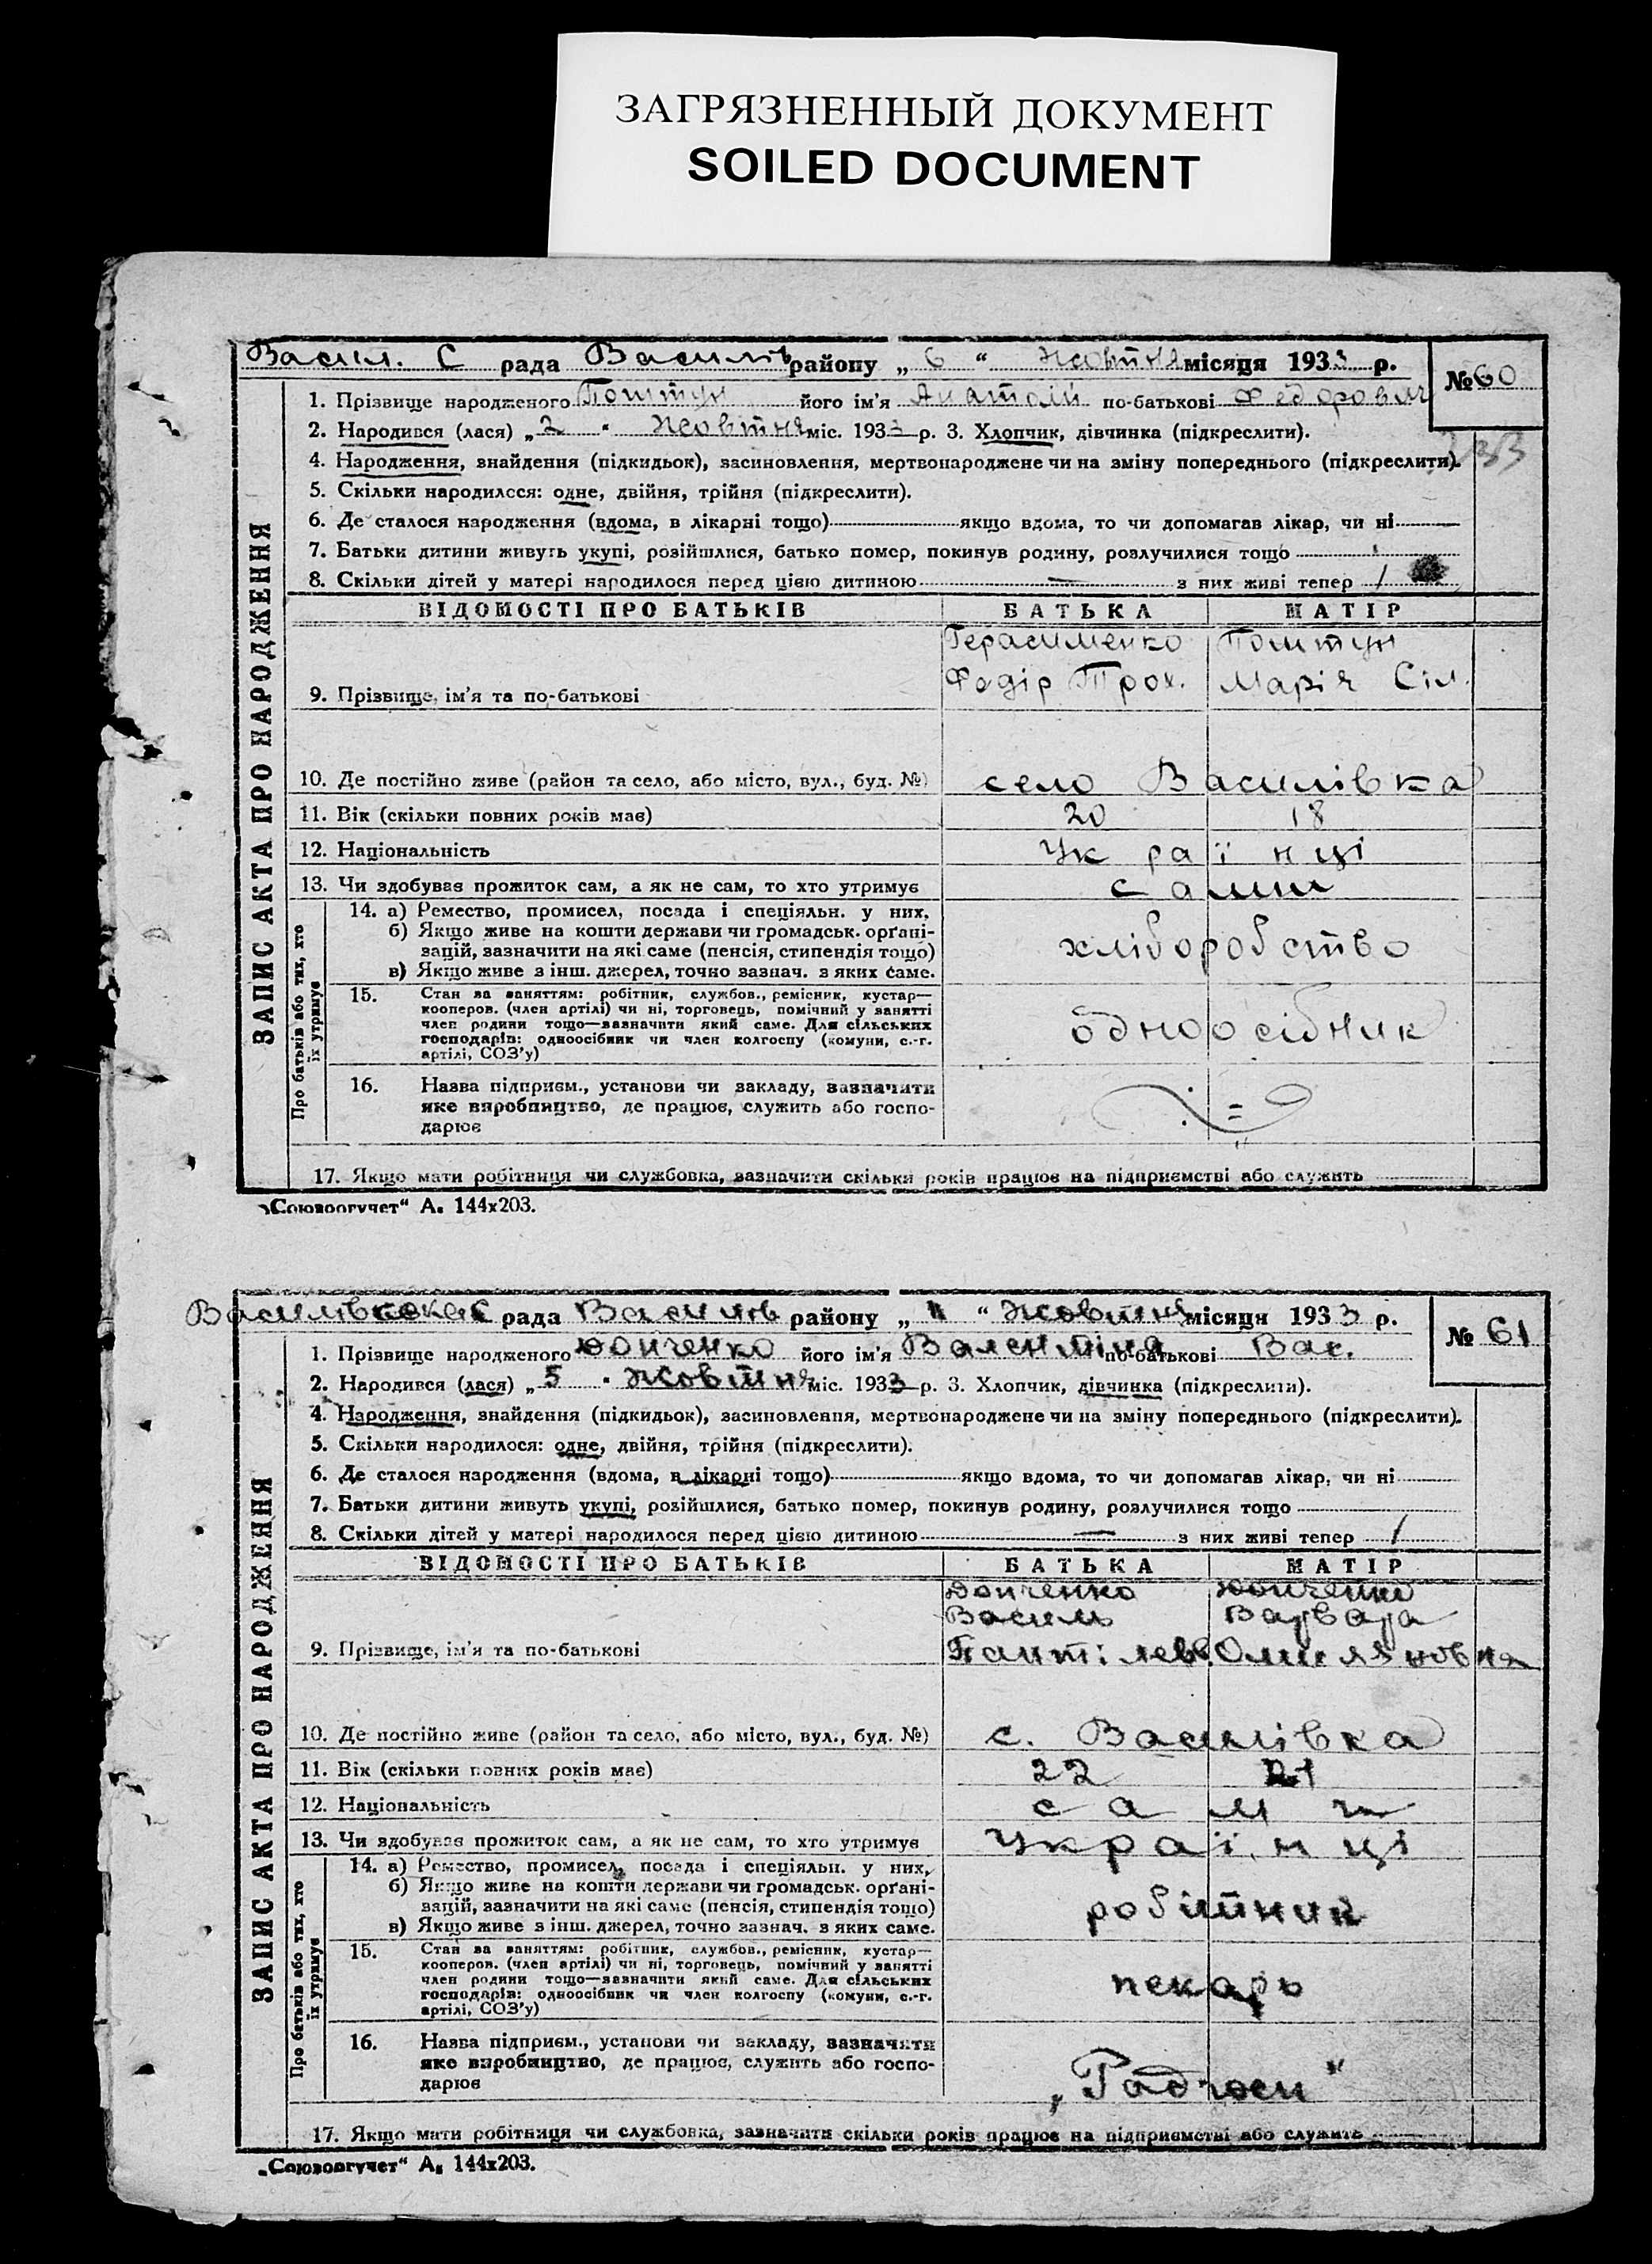 ЗАГРЯЗНЕННЫЙ ДОКУМЕНТ
SOILED DOCUMENT
Васил. С рада Василів району „ 6 “ жовтня місяця 1933 р.
№ 60
1. Прізвище народженого Поштун його ім'я Анатолій по-батькові Федорович
2. Народився (лася) „ 2 “ Жовтня міс. 1933 р. 3. Хлопчик, дівчинка (підкреслити).
4. Народження, знайдення (підкидьок), засиновлення, мертвонароджене чи на зміну попереднього (підкреслити).
5. Скільки народилося: одне, двійня, трійня (підкреслити).
6. Де сталося народження (вдома, в лікарні тощо) якщо вдома, то чи допомагав лікар, чи ні
7. Батьки дитини живуть укупі, розійшлися, батько помер, покинув родину, розлучилися тощо
8. Скільки дітей у матері народилося перед цією дитиною — з них живі тепер 1
ЗАПИС АКТА ПРО НАРОДЖЕННЯ
ВІДОМОСТІ ПРО БАТЬКІВ БАТЬКА МАТІР
Герасименко Поштун
Федір Трох. Марія Сім.
9. Прізвище, ім'я та по-батькові
10. Де постійно живе (район та село, або місто, вул., буд. №) село Василівка
11. Вік (скільки повних років має) 20 18
12. Національність Українці
13. Чи здобуває прожиток сам, а як не сам, то хто утримує сами
Про батьків або тих, хто їх утримує
14. а) Ремество, промисел, посада і спеціяльн. у них.
б) Якщо живе на кошти держави чи громадськ. орґані-
зацій, зазначити на які саме (пенсія, стипендія тощо)
в) Якщо живе з інш. джерел, точно зазнач. з яких саме.
хліборобство
15. Стан за заняттям: робітник, службов., ремісник, кустар—
кооперов. (член артілі) чи ні, торговець, помічний у занятті
член родини тощо—зазначити який саме. Для сільських
господарів: одноосібник чи член колгоспу (комуни, с.-г.
артілі, СОЗ'у)
одноосібник
16. Назва підприєм., установи чи закладу, зазначити
яке виробництво, де працює, служить або госпо-
дарює
17. Якщо мати робітниця чи службовка, зазначити скільки років працює на підприємстві або служить
„Союзоргучет“ А. 144x203.
Василівська С рада Василів району „ 11 “ жовтня місяця 1933 р.
№ 61
1. Прізвище народженого Донченко його ім'я Валентіна по-батькові Вас.
2. Народився (лася) „ 5 “ Жовтня міс. 1933 р. 3. Хлопчик, дівчинка (підкреслити).
4. Народження, знайдення (підкидьок), засиновлення, мертвонароджене чи на зміну попереднього (підкреслити).
5. Скільки народилося: одне, двійня, трійня (підкреслити).
6. Де сталося народження (вдома, в лікарні тощо) якщо вдома, то чи допомагав лікар, чи ні
7. Батьки дитини живуть укупі, розійшлися, батько помер, покинув родину, розлучилися тощо
8. Скільки дітей у матері народилося перед цією дитиною — з них живі тепер 1
ЗАПИС АКТА ПРО НАРОДЖЕННЯ
ВІДОМОСТІ ПРО БАТЬКІВ БАТЬКА МАТІР
Донченко Донченко
Василь Варвара
9. Прізвище, ім'я та по-батькові
10. Де постійно живе (район та село, або місто, вул., буд. №) с. Василівка
11. Вік (скільки повних років має) 22 21
12. Національність сами
13. Чи здобуває прожиток сам, а як не сам, то хто утримує Українці
Про батьків або тих, хто їх утримує
14. а) Ремество, промисел, посада і спеціяльн. у них.
б) Якщо живе на кошти держави чи громадськ. орґані-
зацій, зазначити на які саме (пенсія, стипендія тощо)
в) Якщо живе з інш. джерел, точно зазнач. з яких саме.
робітник
15. Стан за заняттям: робітник, службов., ремісник, кустар—
кооперов. (член артілі) чи ні, торговець, помічний у занятті
член родини тощо—зазначити який саме. Для сільських
господарів: одноосібник чи член колгоспу (комуни, с.-г.
артілі, СОЗ'у)
пекарь
16. Назва підприєм., установи чи закладу, зазначити
яке виробництво, де працює, служить або госпо-
дарює
17. Якщо мати робітниця чи службовка, зазначити скільки років працює на підприємстві або служить
„Союзоргучет“ А. 144x203.